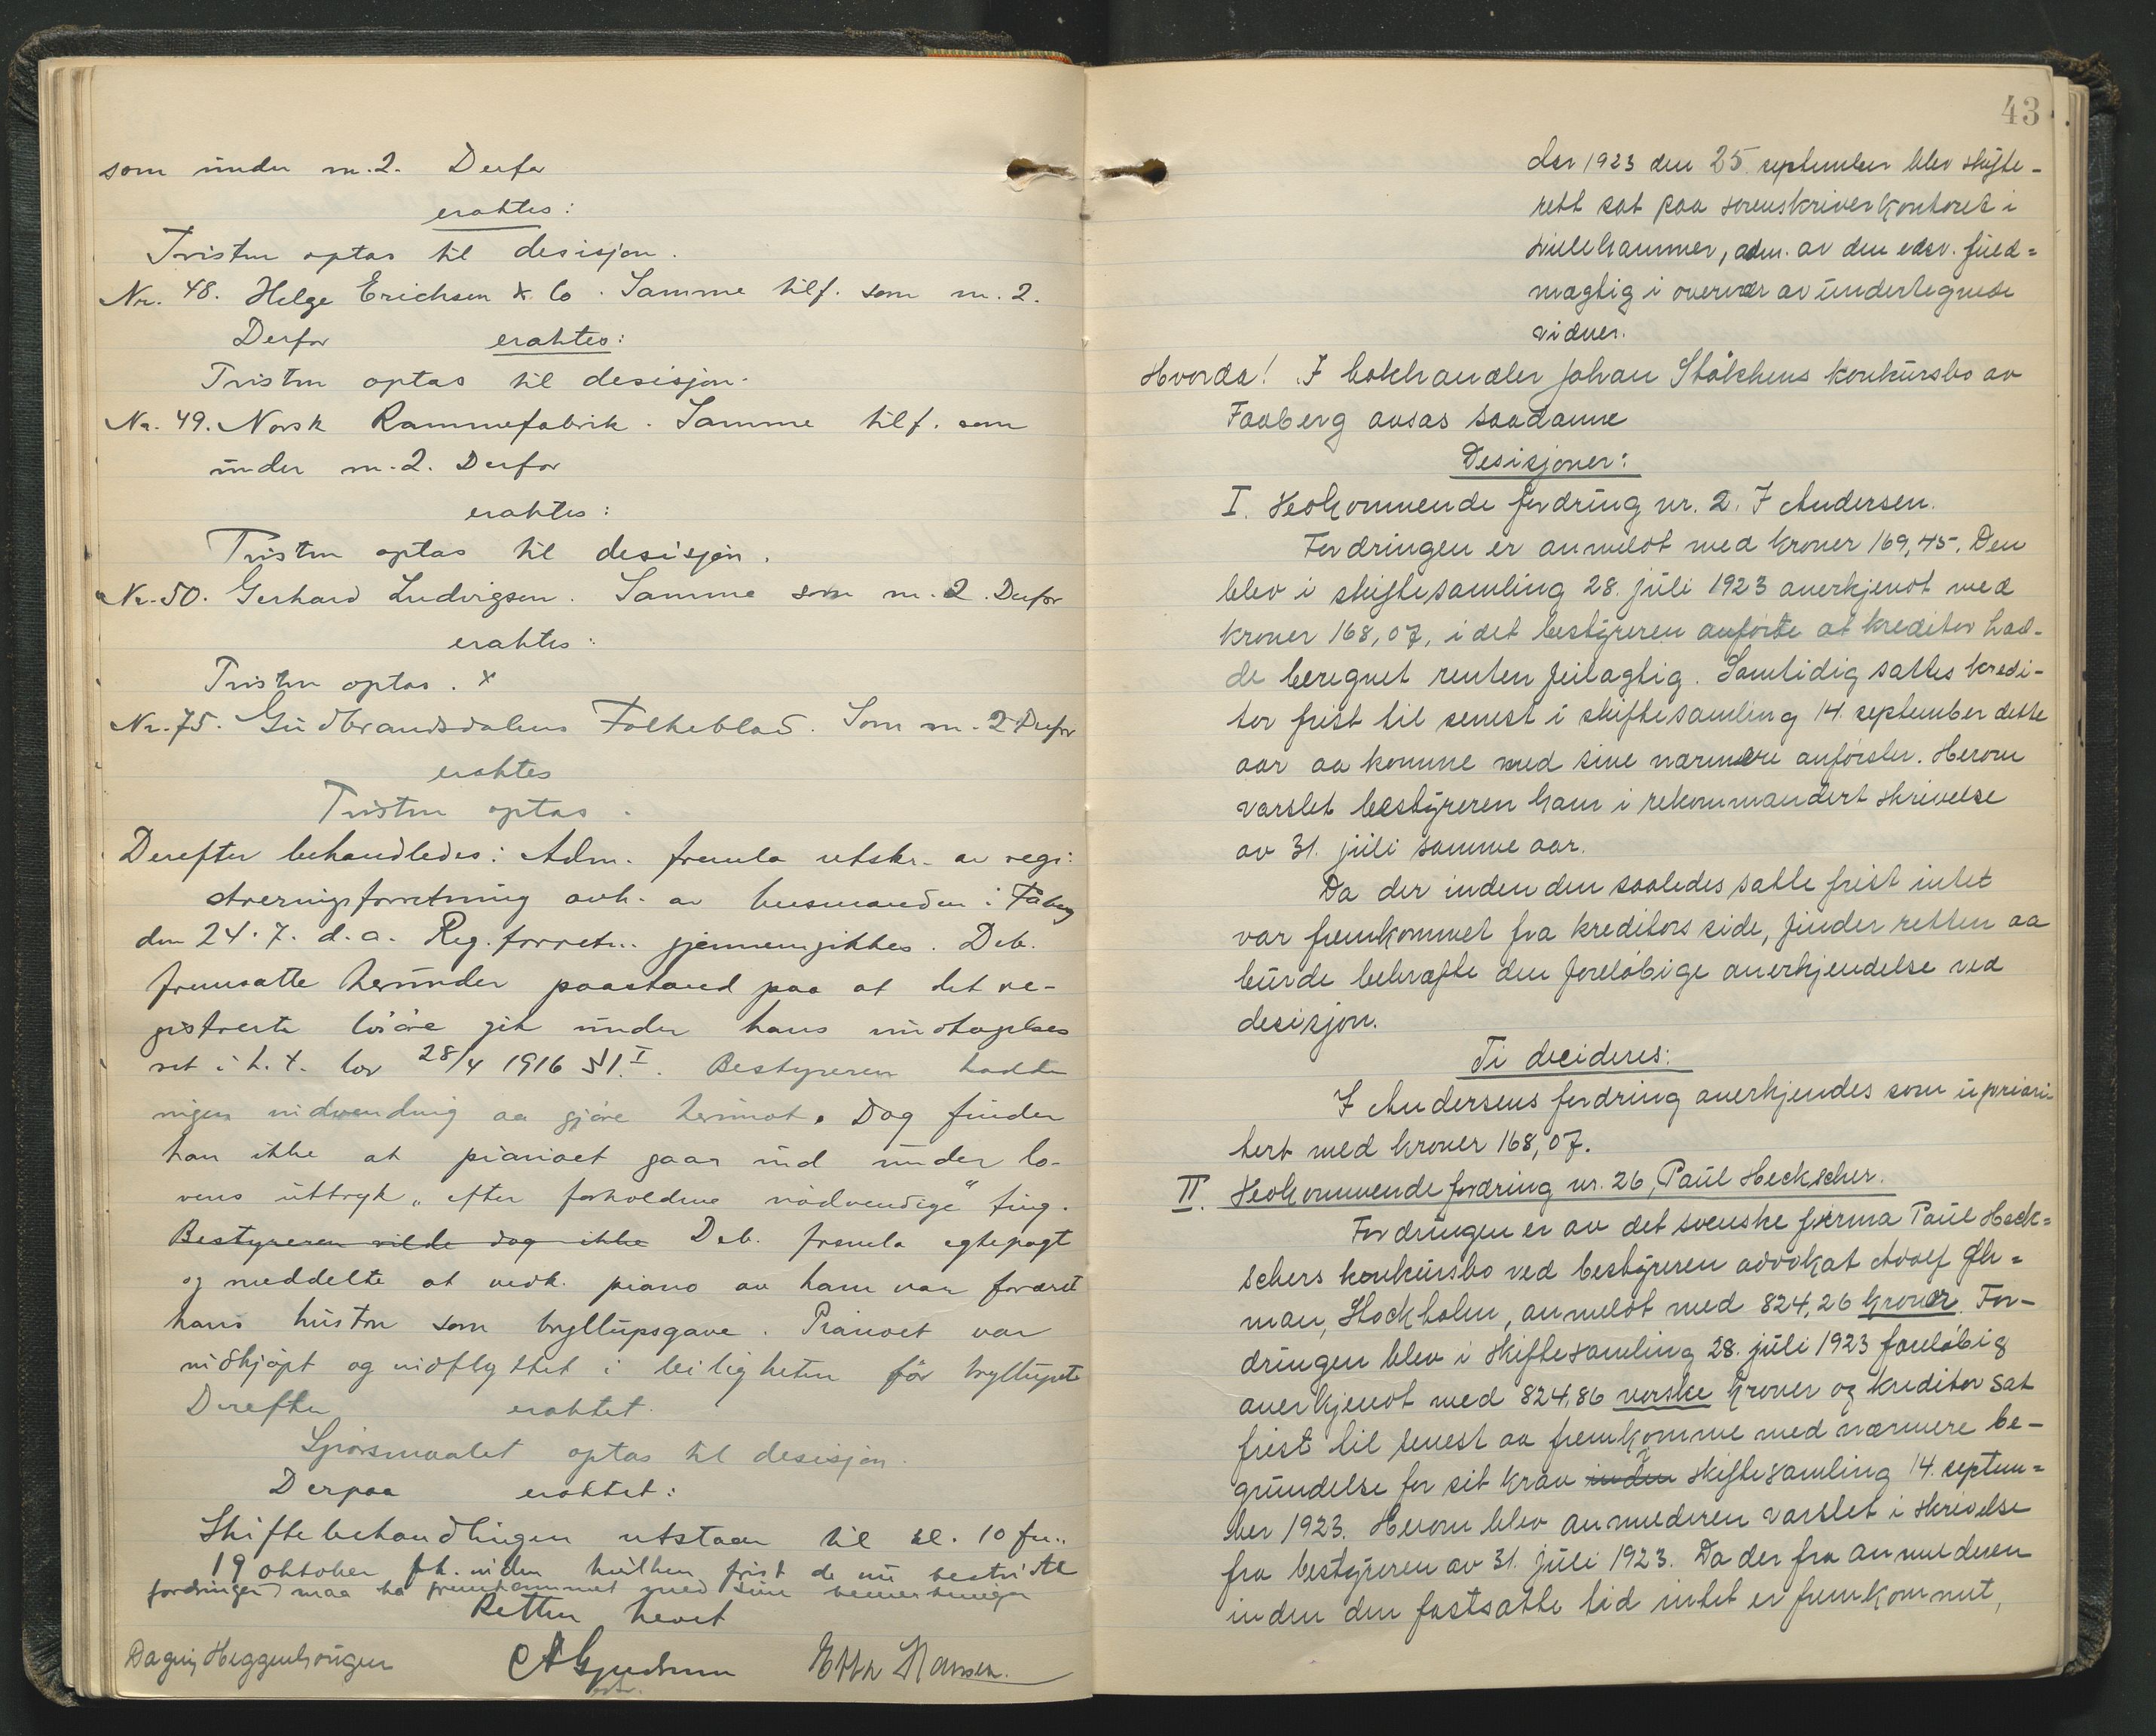 som under nr. 2. Derfor
eragtes:
Tvisten optas til desisjon.
Nr. 48. Helge Erichsen & Co. Samme tilf. som nr. 2.
Derfor eragtes:
Tvisten optas til desisjon.
Nr. 49. Norsk Rammefabrik. Samme tilf. som
under nr. 2. Derfor
eragtes:
Tvisten optas til desisjon.
Nr. 50. Gerhard Ludvigsen. Samme som nr. 2. Derfor
eragtes:
Tvisten optas. x
Nr. 75. Gudbrandsdalens Folkeblad. Som nr. 2 Derfor
eragtes
Tvisten optas.
Derefter behandledes: Adm. fremla utskr. av regi-
streringsforretning avh. av lensmanden i Fåberg
den 24.7. d.a. Reg. forretn. gjennemgikkes. Deb.
fremsatte herunder paastand paa at det re-
gistrerte løsøre gik under hans undtagelses
ret i h.t. lov 28/4 1916 § 1. I. Bestyreren hadde
ingen indvending aa gjøre herimot. Dog finder
han ikke at pianoet gaar ind under lo-
vens uttryk "efter forholdene nødvendige" ting.
Bestyreren vilde dog ikke Deb. fremla egtepagt
og meddelte at vedk. piano av ham var foræret
hans hustru som bryllupsgave. Pianoet var
indkjøpt og indflyttet i leiligheten før bryllupet.
Derefter eragtet.
Spørsmaalet optas til desisjon.
Derpaa eragtet:
Skiftebehandlingen utstaar til kl. 10 fm.
19 oktober fk. inden hvilken frist de nu bestridte
fordringer maa ha fremkommet med sine bemerkninger
Retten hevet
Dagny Heggenhougen Otto Hansen.
43
der 1923 den 25. september blev skifte-
rett sat paa sorenskriverkontoret i
Lillehammer, adm. av den edsv. fuld=
mægtig i overvær av undertegnede
vidner.
Hvorda! I bokhandler Johan Stökkens konkursbo av
Faaberg avsas saadanne
Desisjoner:
I. Vedkommende fordring nr. 2. I Andersen.
Fordringen er anmeldt med kroner 169,45. Den
blev i skiftesamling 28. juli 1923 anerkjendt med
kroner 168,07, i det bestyreren anførte at kreditor had-
de beregnet renten feilagtig. Samtidig sattes kredi-
tor frist til senest i skiftesamling 14. september dette
aar aa komme med sine nærmere anførsler. Herom
varslet bestyreren ham i rekommandert skrivelse
av 31. juli samme aar.
Da der inden den saaledes satte frist intet
var fremkommet fra kreditors side, finder retten aa
burde bekræfte den foreløbige anerkjendelse ved
desisjon.
Ti decideres:
I Andersens fordring anerkjendes som upriori-
tert med kroner 168,07.
II. Vedkommende fordring nr. 26, Paul Heckscher.
Fordringen er av det svenske firma Paul Heck=
schers konkursbo ved bestyreren advokat Adolf Öh=
man, Stockholm, anmeldt med 824,26 kronor. For-
dringen blev i skiftesamling 28. juli 1923 foreløbig
anerkjendt med 824,86 norske kroner og kreditor sat
frist til senest aa fremkomme med nærmere be-
grundelse for sit krav inden i skiftesamling 14. septem=
ber 1923. Herom blev anmelderen varslet i skrivelse
fra bestyreren av 31. juli 1923. Da der fra anmelderen
inden den fastsatte tid intet er fremkommet,